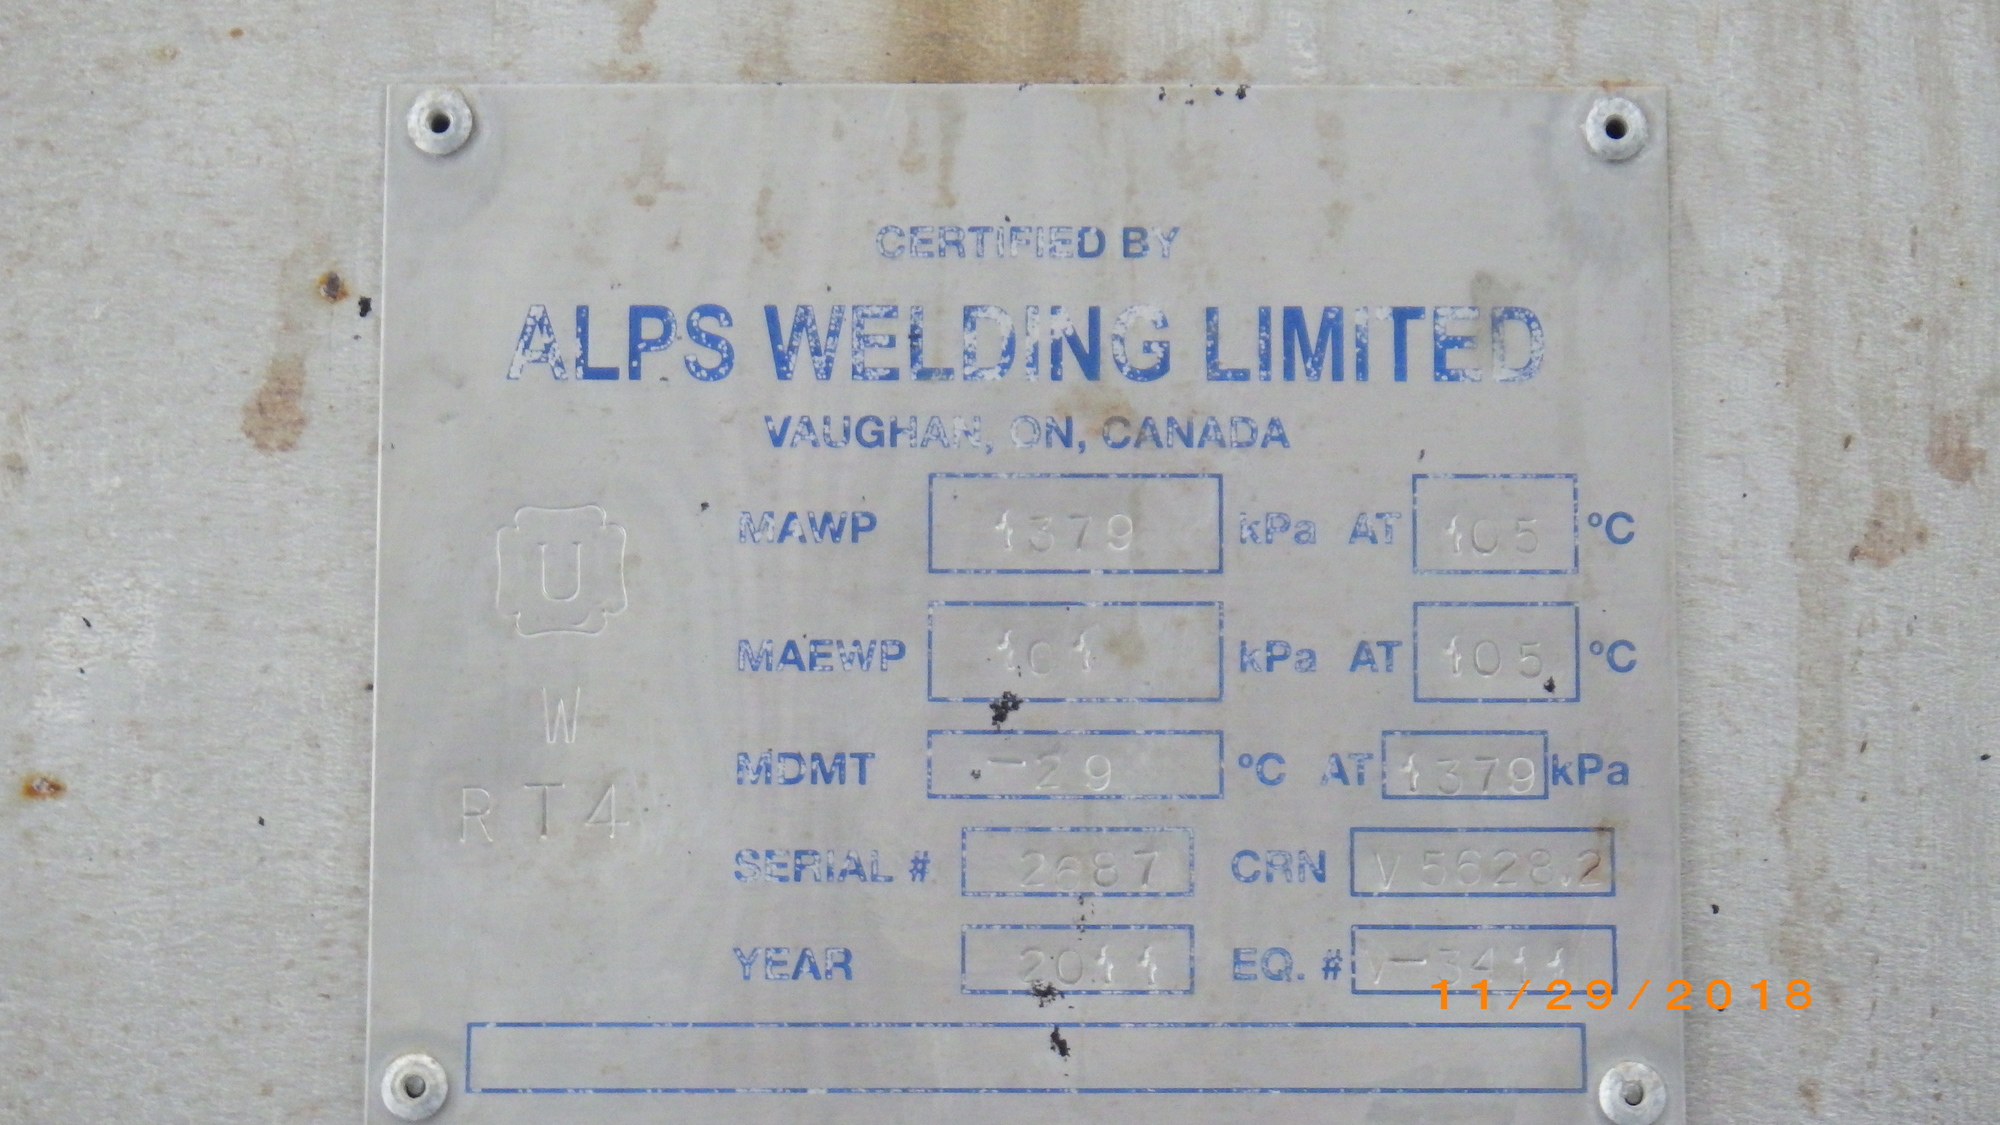 CERTIFIED BY
ALPS WELDING LIMITED
VAUGHAN, ON, CANADA
U
W
RT4
MAWP 1379 kPa AT 105 °C
MAEWP 101 kPa AT 105 °C
MDMT -29 °C AT 1379 kPa
SERIAL # 2687 CRN V5628.2
YEAR 2011 EQ. # V-3411
11/29/2018